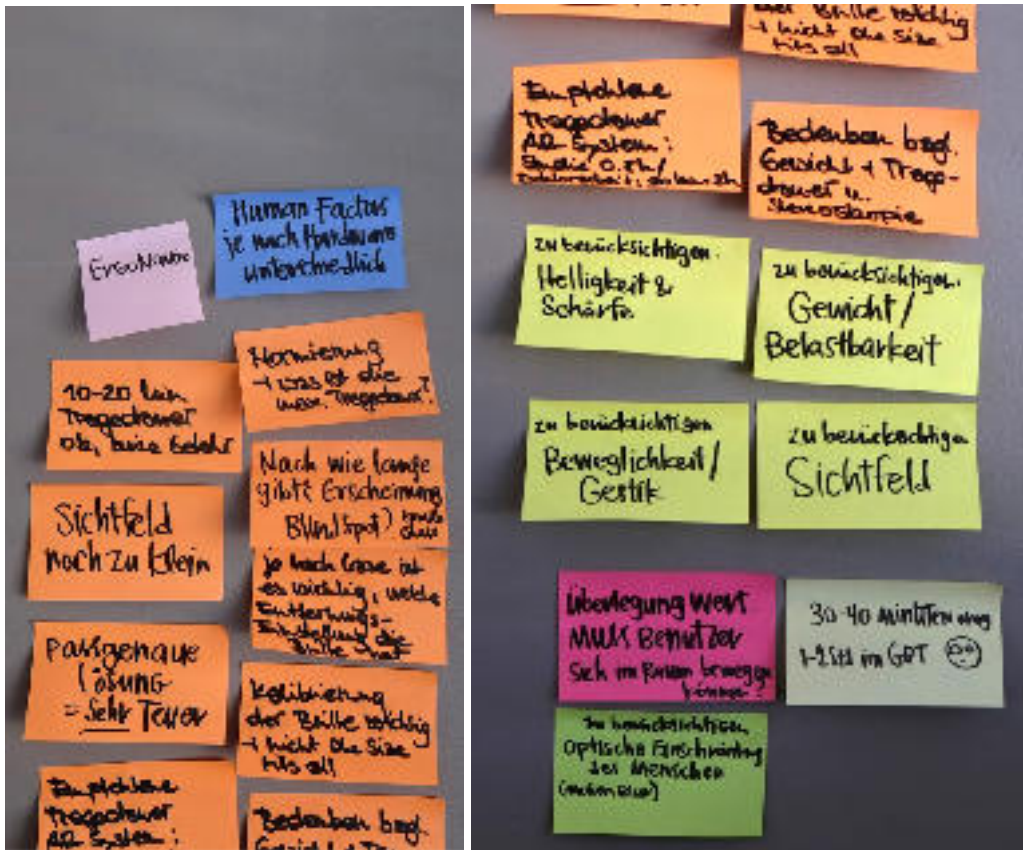 Ergonomie
Human Factors
je nach Hardware
unterschiedlich
Normierung
→ was ist die
max. Tragedauer?
10-20 min
Tragedauer
ok, keine Gefahr
Nach wie lange
gibt's Erscheinung
Blind Spot)
Sichtfeld
noch zu klein
je nach ist
es wichtig, welche
Entfernungs-
Einstellung die
Brille hat
Passgenaue
Lösung
= Sehr Teuer
Kalibrierung
der Brille wichtig
→ nicht One Size
fits all
Empfohlene
Tragedauer
AR System:
Bedenken bzgl.
Gewicht + Trage-
der Brille wichtig
→ nicht One Size
fits all
Empfohlene
Tragedauer
AR System:
Studie 0.5h/
Bedenken bzgl.
Gewicht + Trage-
dauer u.
zu berücksichtigen:
Helligkeit &
Schärfe
zu berücksichtigen:
Gewicht/
Belastbarkeit
zu berücksichtigen
Beweglichkeit/
Gestik
zu berücksichtigen
Sichtfeld
Überlegung wert
Muss Benutzer
sich im Raum bewegen
können?
30-40 Minuten
1-2 Std im
zu berücksichtigen
Optische Einschränkung
des Menschen
(motion Blur)